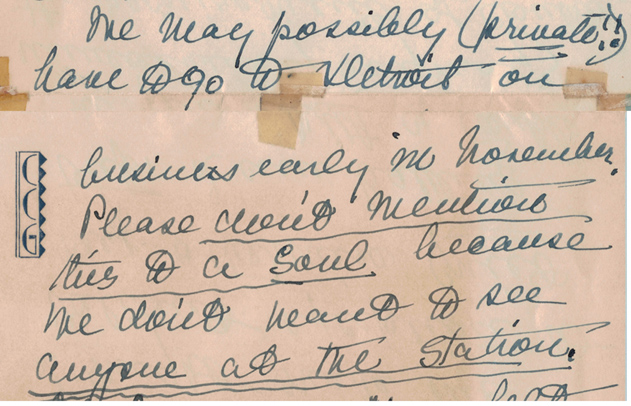 We may possibly (private!!)
have to go to Detroit on
business early in November.
Please don't mention
this to a Soul because
We don't want to see
anyone at the Station.
CCG